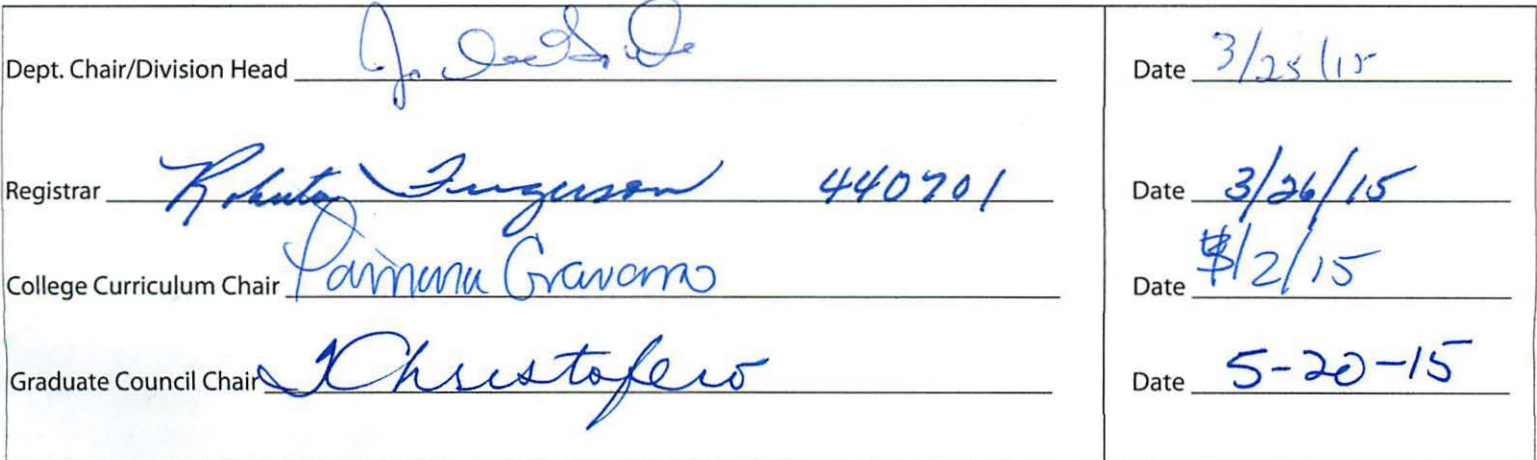 Dept. Chair/Division Head Date 3/25/15
Registrar Roberta Ferguson 440701 Date 3/26/15
College Curriculum Chair Gravano Date /2/15
Graduate Council Chair Christofero Date 5-20-15